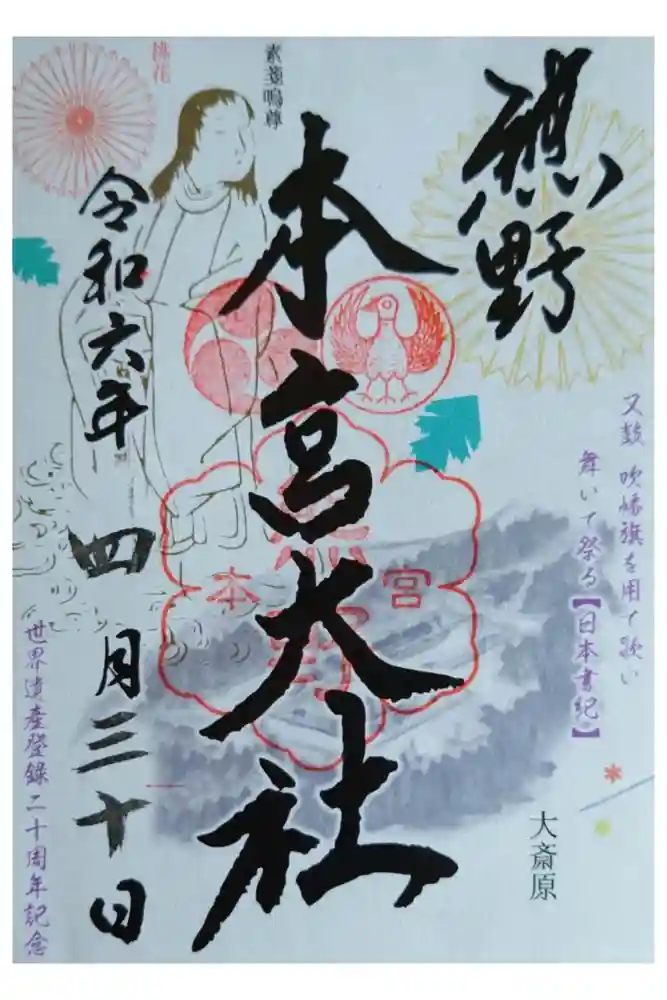 熊野
本宮大社
又鼓 吹幡旗を用て歌い
舞いて祭る【日本書紀】
大斎原
素戔嗚尊
桃花
令和六年 四月三十日
世界遺産登録二十周年記念
熊野
本宮